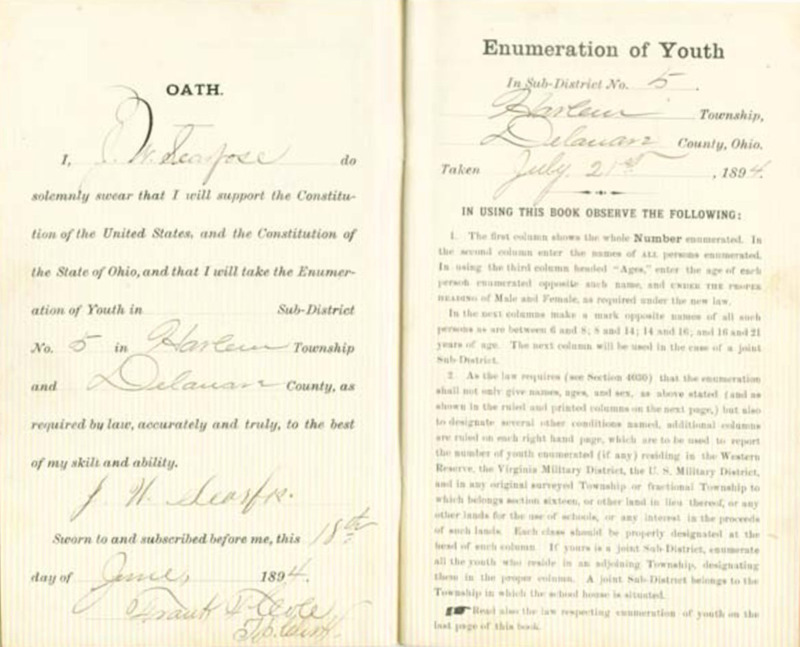 OATH.
I, J. W. Searfose do
solemnly swear that I will support the Constitu-
tion of the United States, and the Constitution of
the State of Ohio, and that I will take the Enumer-
ation of Youth in Sub-District
No. 5 in Harlem Township
and Delaware County, as
required by law, accurately and truly, to the best
of my skill and ability.
J. W.
Sworn to and subscribed before me, this 18th
day of June, 1894.
Frank
Enumeration of Youth
In Sub-District No. 5.
Harlem Township,
Delaware County, Ohio.
Taken July 21st, 1894.
IN USING THIS BOOK OBSERVE THE FOLLOWING:
1. The first column shows the whole Number enumerated. In
the second column enter the names of ALL persons enumerated.
In using the third column headed "Ages," enter the age of each
person enumerated opposite such name, and UNDER THE PROPER
HEADING of Male and Female, as required under the new law.
In the next columns make a mark opposite names of all such
persons as are between 6 and 8; 8 and 14; 14 and 16; and 16 and 21
years of age. The next column will be used in the case of a joint
Sub-District.
2. As the law requires (see Section 4030) that the enumeration
shall not only give names, ages, and sex, as above stated (and as
shown in the ruled and printed columns on the next page,) but also
to designate several other conditions named, additional columns
are ruled on each right hand page, which are to be used to report
the number of youth enumerated (if any) residing in the Western
Reserve, the Virginia Military District, the U. S. Military District,
and in any original surveyed Township or fractional Township to
which belongs section sixteen, or other land in lieu thereof, or any
other lands for the use of schools, or any interest in the proceeds
of such lands. Each class should be properly designated at the
head of each column. If yours is a joint Sub-District, enumerate
all the youth who reside in an adjoining Township, designating
them in the proper column. A joint Sub-District belongs to the
Township in which the school house is situated.
Read also the law respecting enumeration of youth on the
last page of this book.